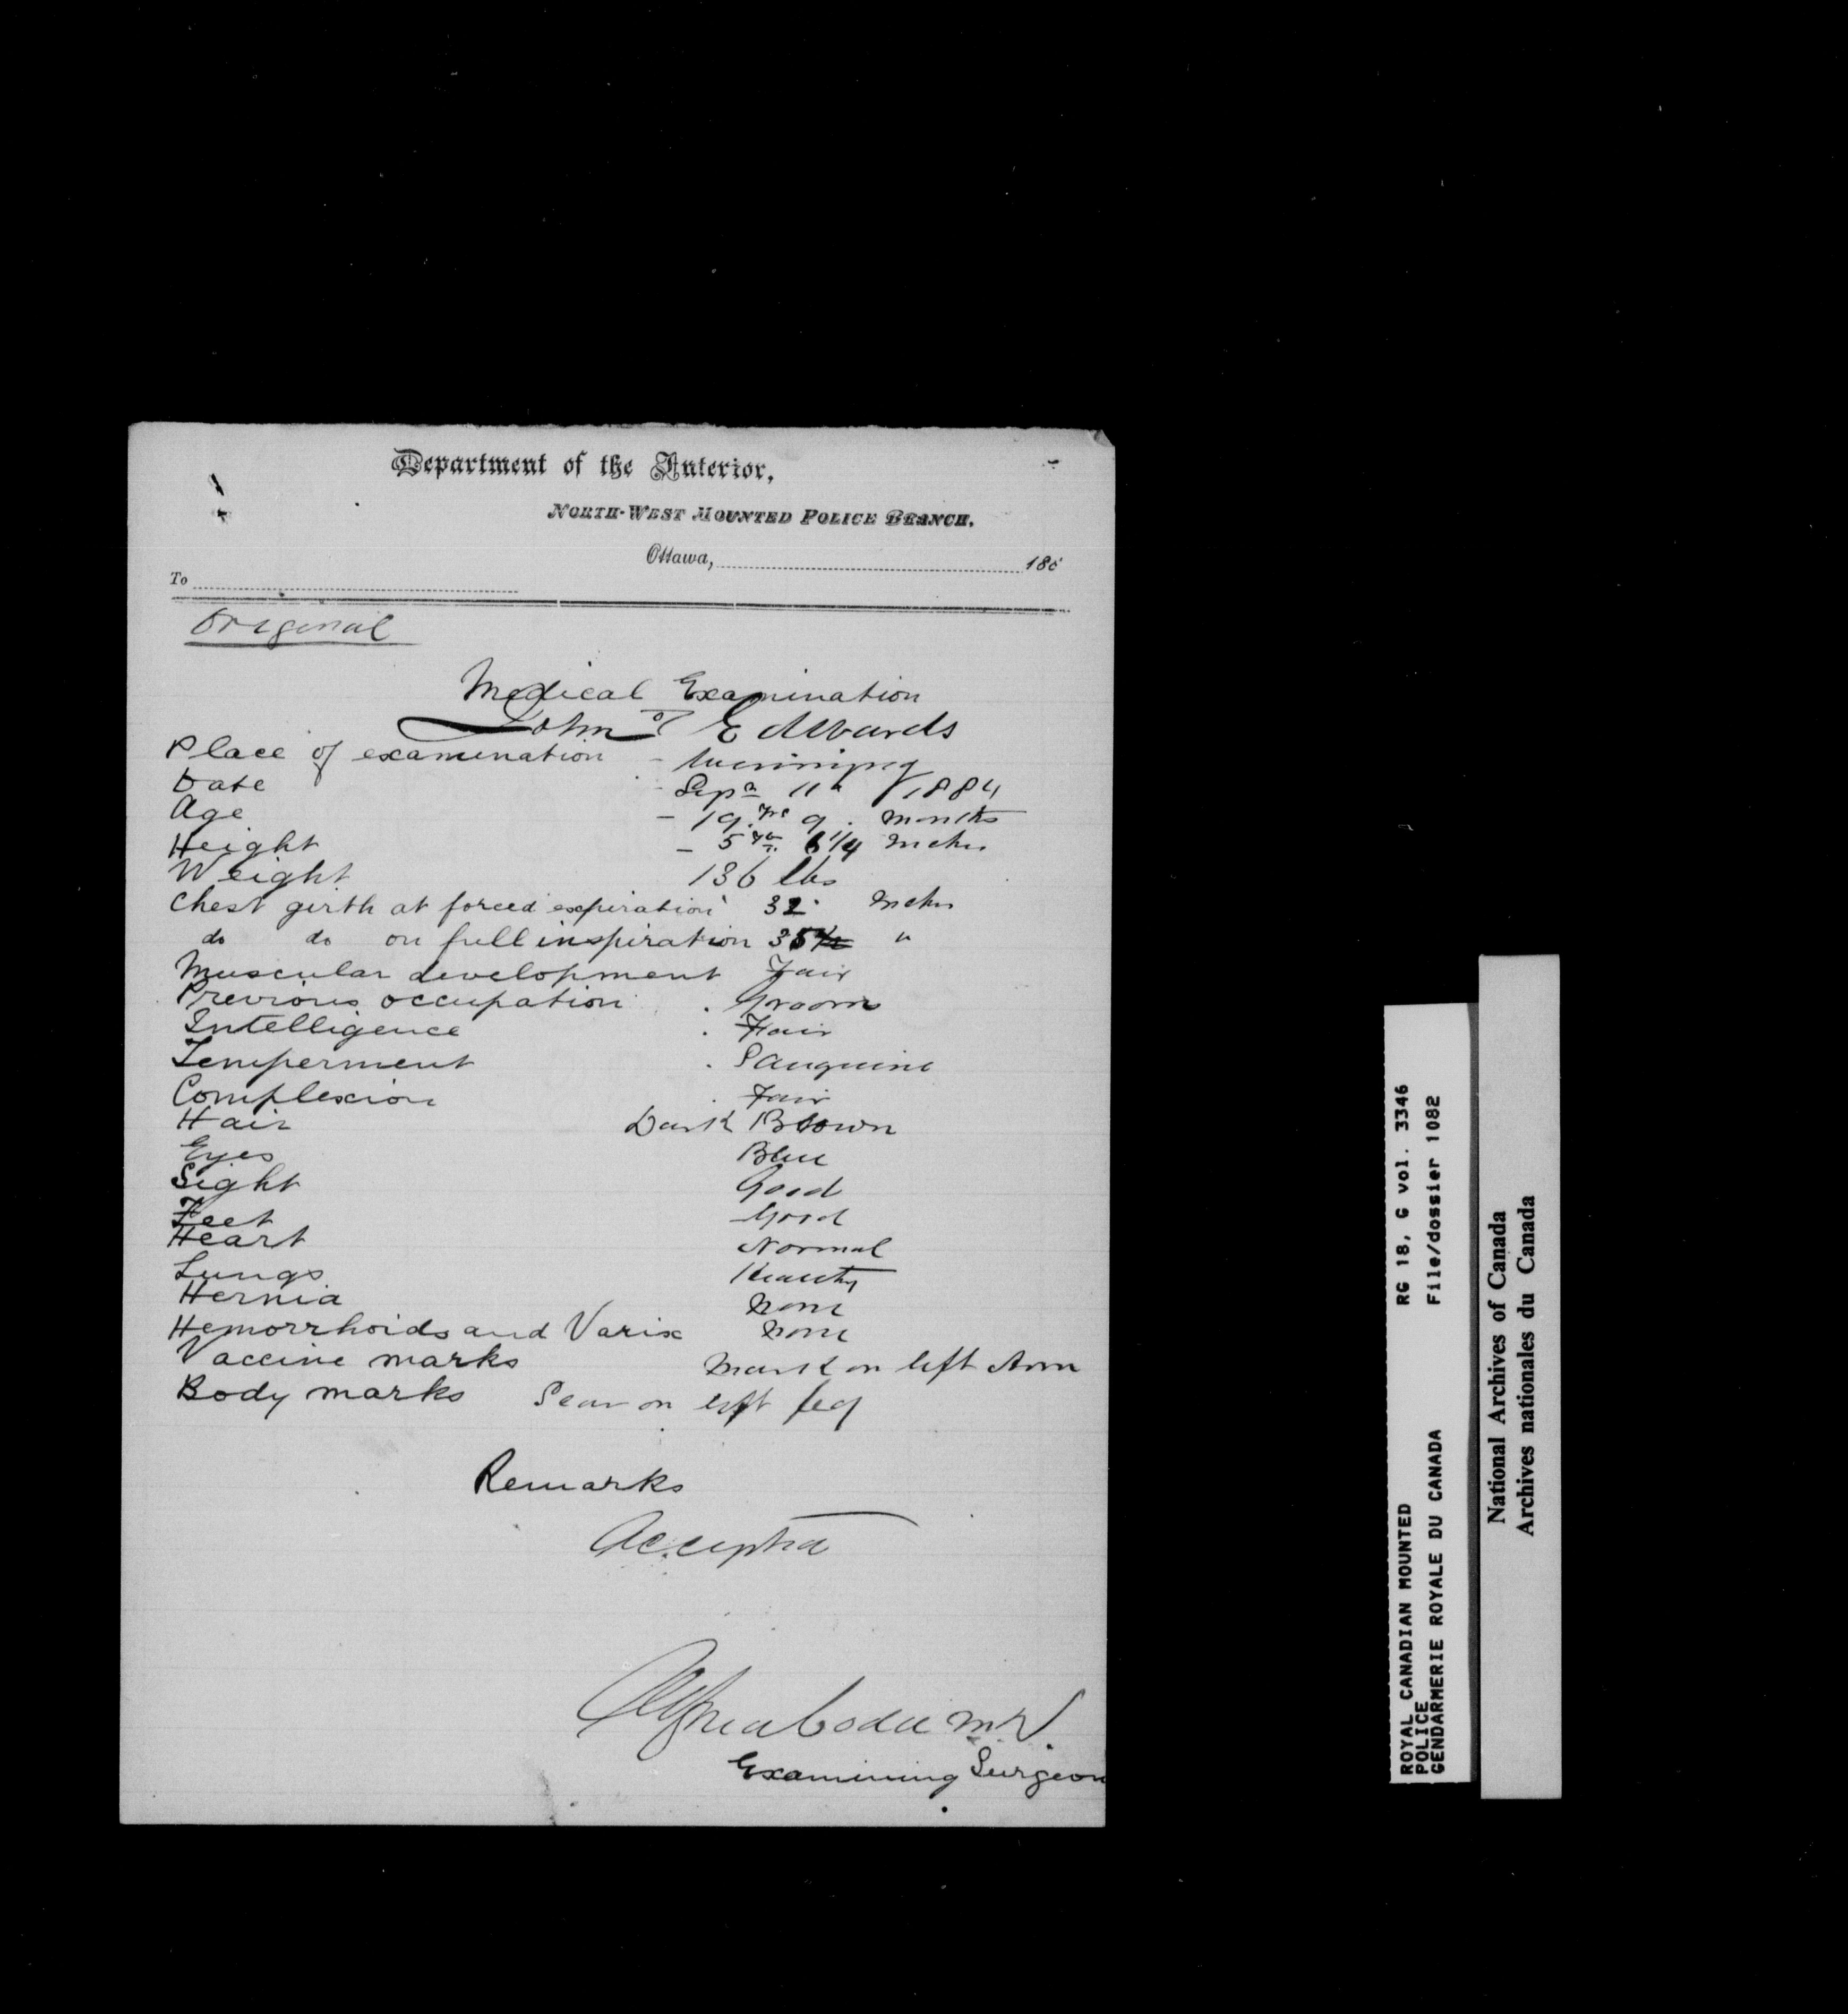 Department of the Interior,
North-West Mounted Police Branch.
Ottawa, 188
To
Original
Medical Examination
of
John Edwards
Place of examination - Winnipeg
Date - Sep 11th 1884
Age - 19 yrs 9. months
Height - 5 ft. 6 1/4 Inches
Weight 136 lbs
Chest girth at forced expiration 32 Inches
do do on full inspiration 35 "
Muscular development Fair
Previous occupation . Groom
Intelligence . Fair
Temperment . Sanguine
Complexion . Fair
Hair Dark Brown
Eyes Blue
Sight Good
Feet Good
Heart Normal
Lungs Healthy
Hernia None
Hemorrhoids and Varix None
Vaccine marks Mark on left Arm
Body marks Scar on left leg
Remarks
Accepted
Alfred Codd M.D.
Examining Surgeon
ROYAL CANADIAN MOUNTED RG 18, G vol. 3346
POLICE
GENDARMERIE ROYALE DU CANADA File/dossier 1082
National Archives of Canada
Archives nationales du Canada